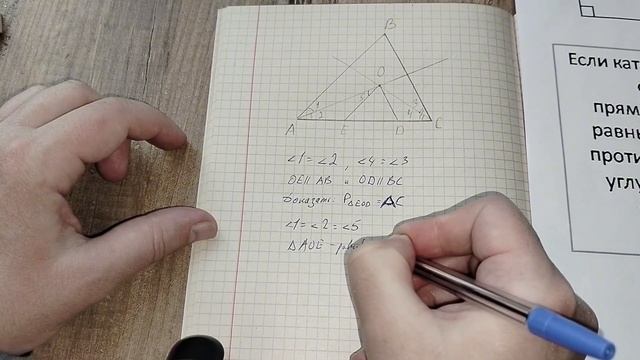 B
O
A E D C
∠1 = ∠2 , ∠4 = ∠3
OE || AB и OD || BC
Доказать: P△EOD = AC
∠1 = ∠2 = ∠5
△AOE –
Если кат
прям
равны
проти
углу